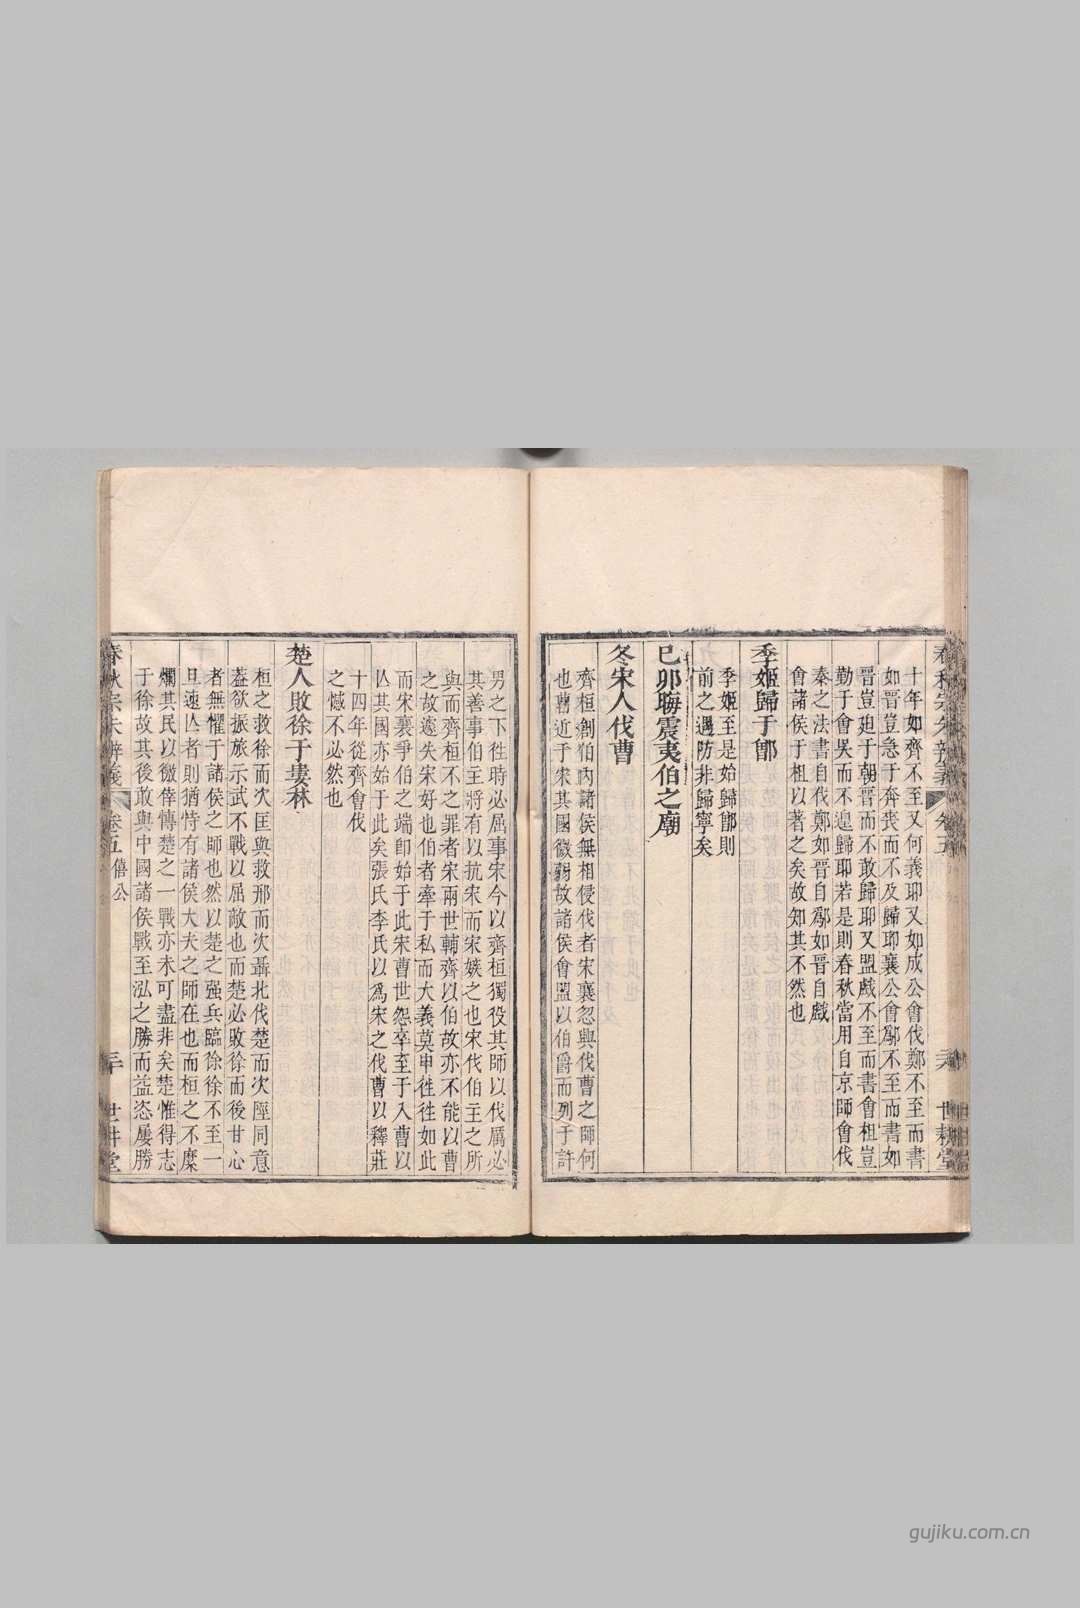 十年如齊不至又何義耶又如成公會伐鄭不至而書
如晉豈急于奔喪而不及歸耶襄公會鄬不至而書如
晉豈廹于朝晉而不敢歸耶又盟戲不至而書會柤豈
勤于會吳而不遑歸耶若是則春秋當用自京師會伐
秦之法書自伐鄭如晉自鄬如晉自戲
會諸侯于柤以著之矣故知其不然也
季姬歸于鄫
季姬至是始歸鄫則
前之遇防非歸寧矣
己卯晦震夷伯之廟
冬宋人伐曹
齊桓創伯内諸侯無相侵伐者宋襄忽與伐曹之師何
也曹近于宋其國微弱故諸侯會盟以伯爵而列于許
男之下徃時必屈事宋今以齊桓獨役其師以伐厲必
其善事伯主將有以抗宋而宋嫉之也宋伐伯主之所
與而齊桓不之罪者宋兩世輔齊以伯故亦不能以曹
之故遽失宋好也伯者牽于私而大義莫申徃徃如此
而宋襄爭伯之端卽始于此宋曹世怨卒至于入曹以
亾其國亦始于此矣張氏李氏以爲宋之伐曹以釋莊
十四年從齊會伐
之憾不必然也
楚人敗徐于婁林
桓之救徐而次匡與救邢而次聶北伐楚而次陘同意
蓋欲振旅示武不戰以屈敵也而楚必敗徐而後甘心
者無懼于諸侯之師也然以楚之强兵臨徐徐不至一
旦遽亾者則猶恃有諸侯大夫之師在也而桓之不糜
爛其民以徼倖傳楚之一戰亦未可盡非矣楚惟得志
于徐故其後敢與中國諸侯戰至泓之勝而益恣屢勝
春秋宗朱辨義
卷五
僖公
三十
世耕堂